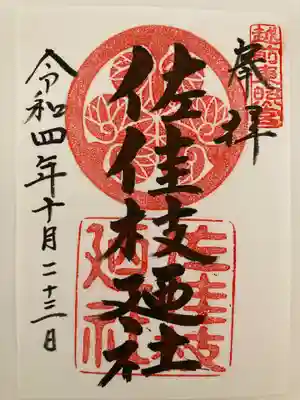 奉拝
越前東照宮
佐佳枝廼社
佐佳枝
廼社
令和四年十月二十三日